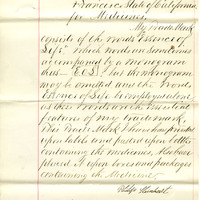 Francisco, State of California,
for Medicines.
My Trade Mark
consists of the words "Essence of
Life" which words are sometimes
accompanied by a monogram
thus but the monogram
may be omitted and the words
Essence of Life
as these words are the essential
features of my trademark.
This Trade Mark I have had printed
upon labels and pasted upon bottles
containing the medicines. Also have
placed it upon boxes and packages
containing the Medicines.
Philip